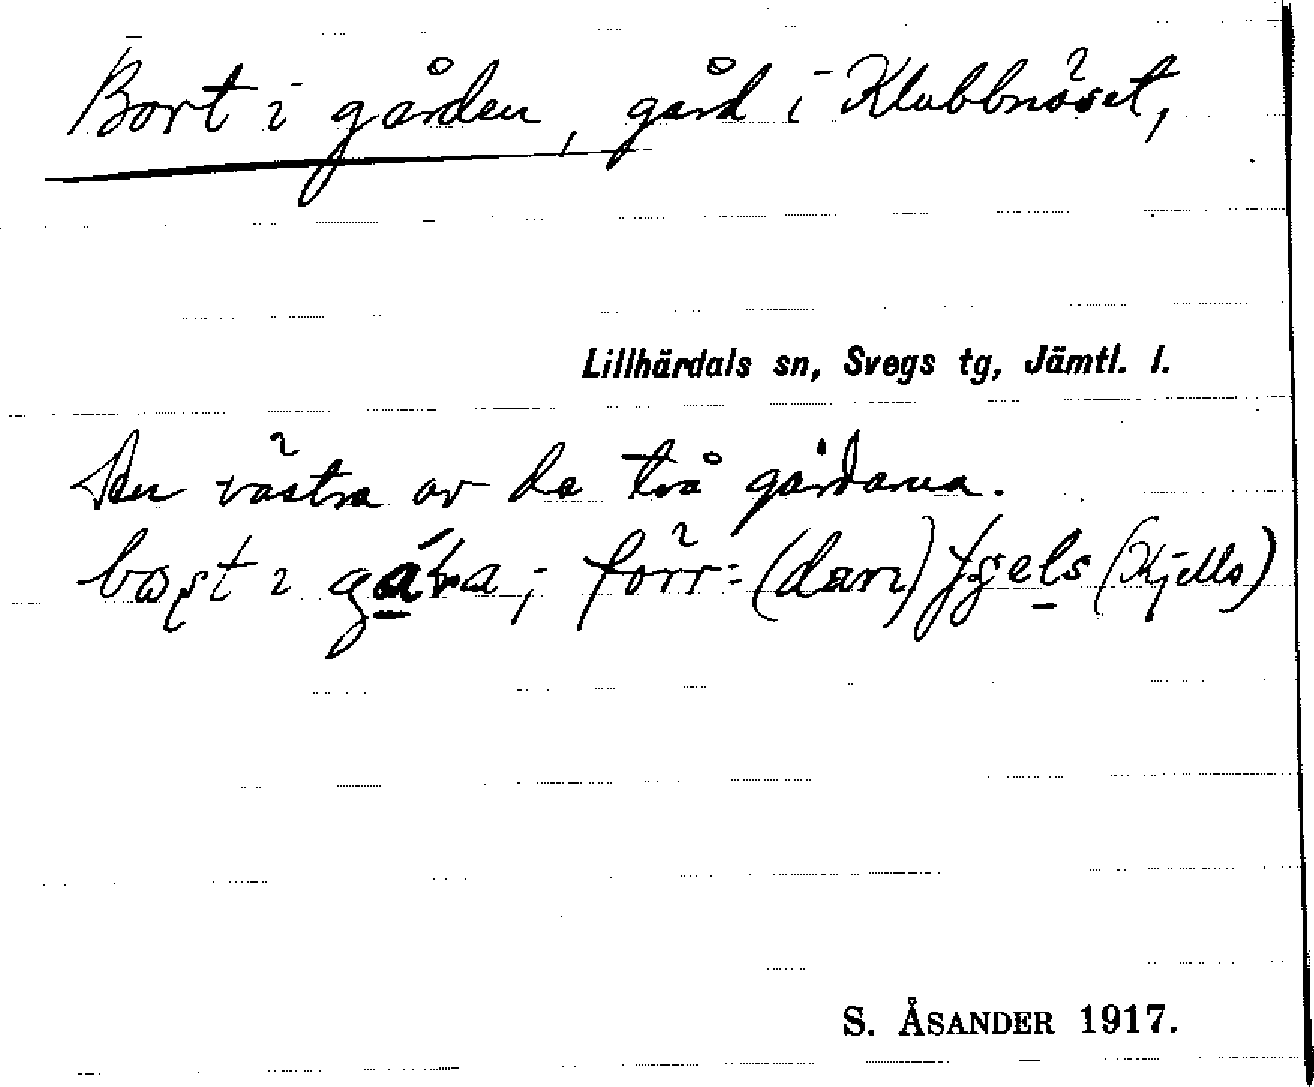 Bort i gården, gård i Klubbnäset,
Lillhärdals sn, Svegs tg, Jämtl. l.
Den västra av de två gårdarna.
bort i gáṙa; förr: (dan) fgels (Kjells)
S. ÅSANDER 1917.